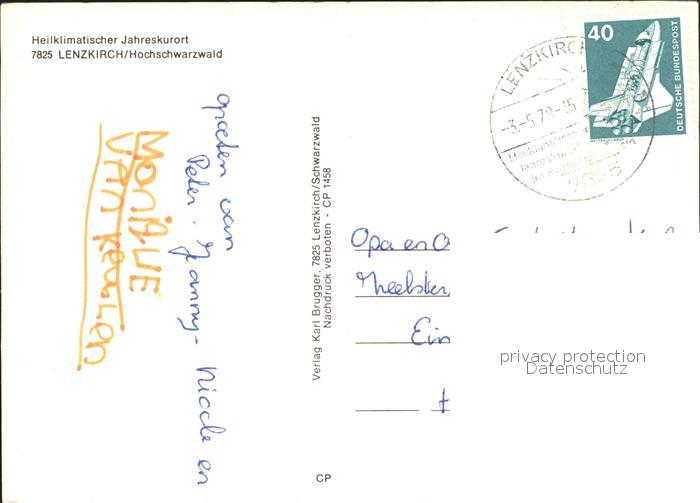 Heilklimatischer Jahreskurort
7825 LENZKIRCH/Hochschwarzwald
groeten van
Peter - Hanny - Nicole en
MONIQUE
VAN
Verlag Karl Brugger, 7825 Lenzkirch/Schwarzwald
Nachdruck verboten - CP 1458
CP
40
DEUTSCHE BUNDESPOST
LENZKIRCH
-3.-5.79-15
7825
Opa en O
Ein
privacy protection
Datenschutz